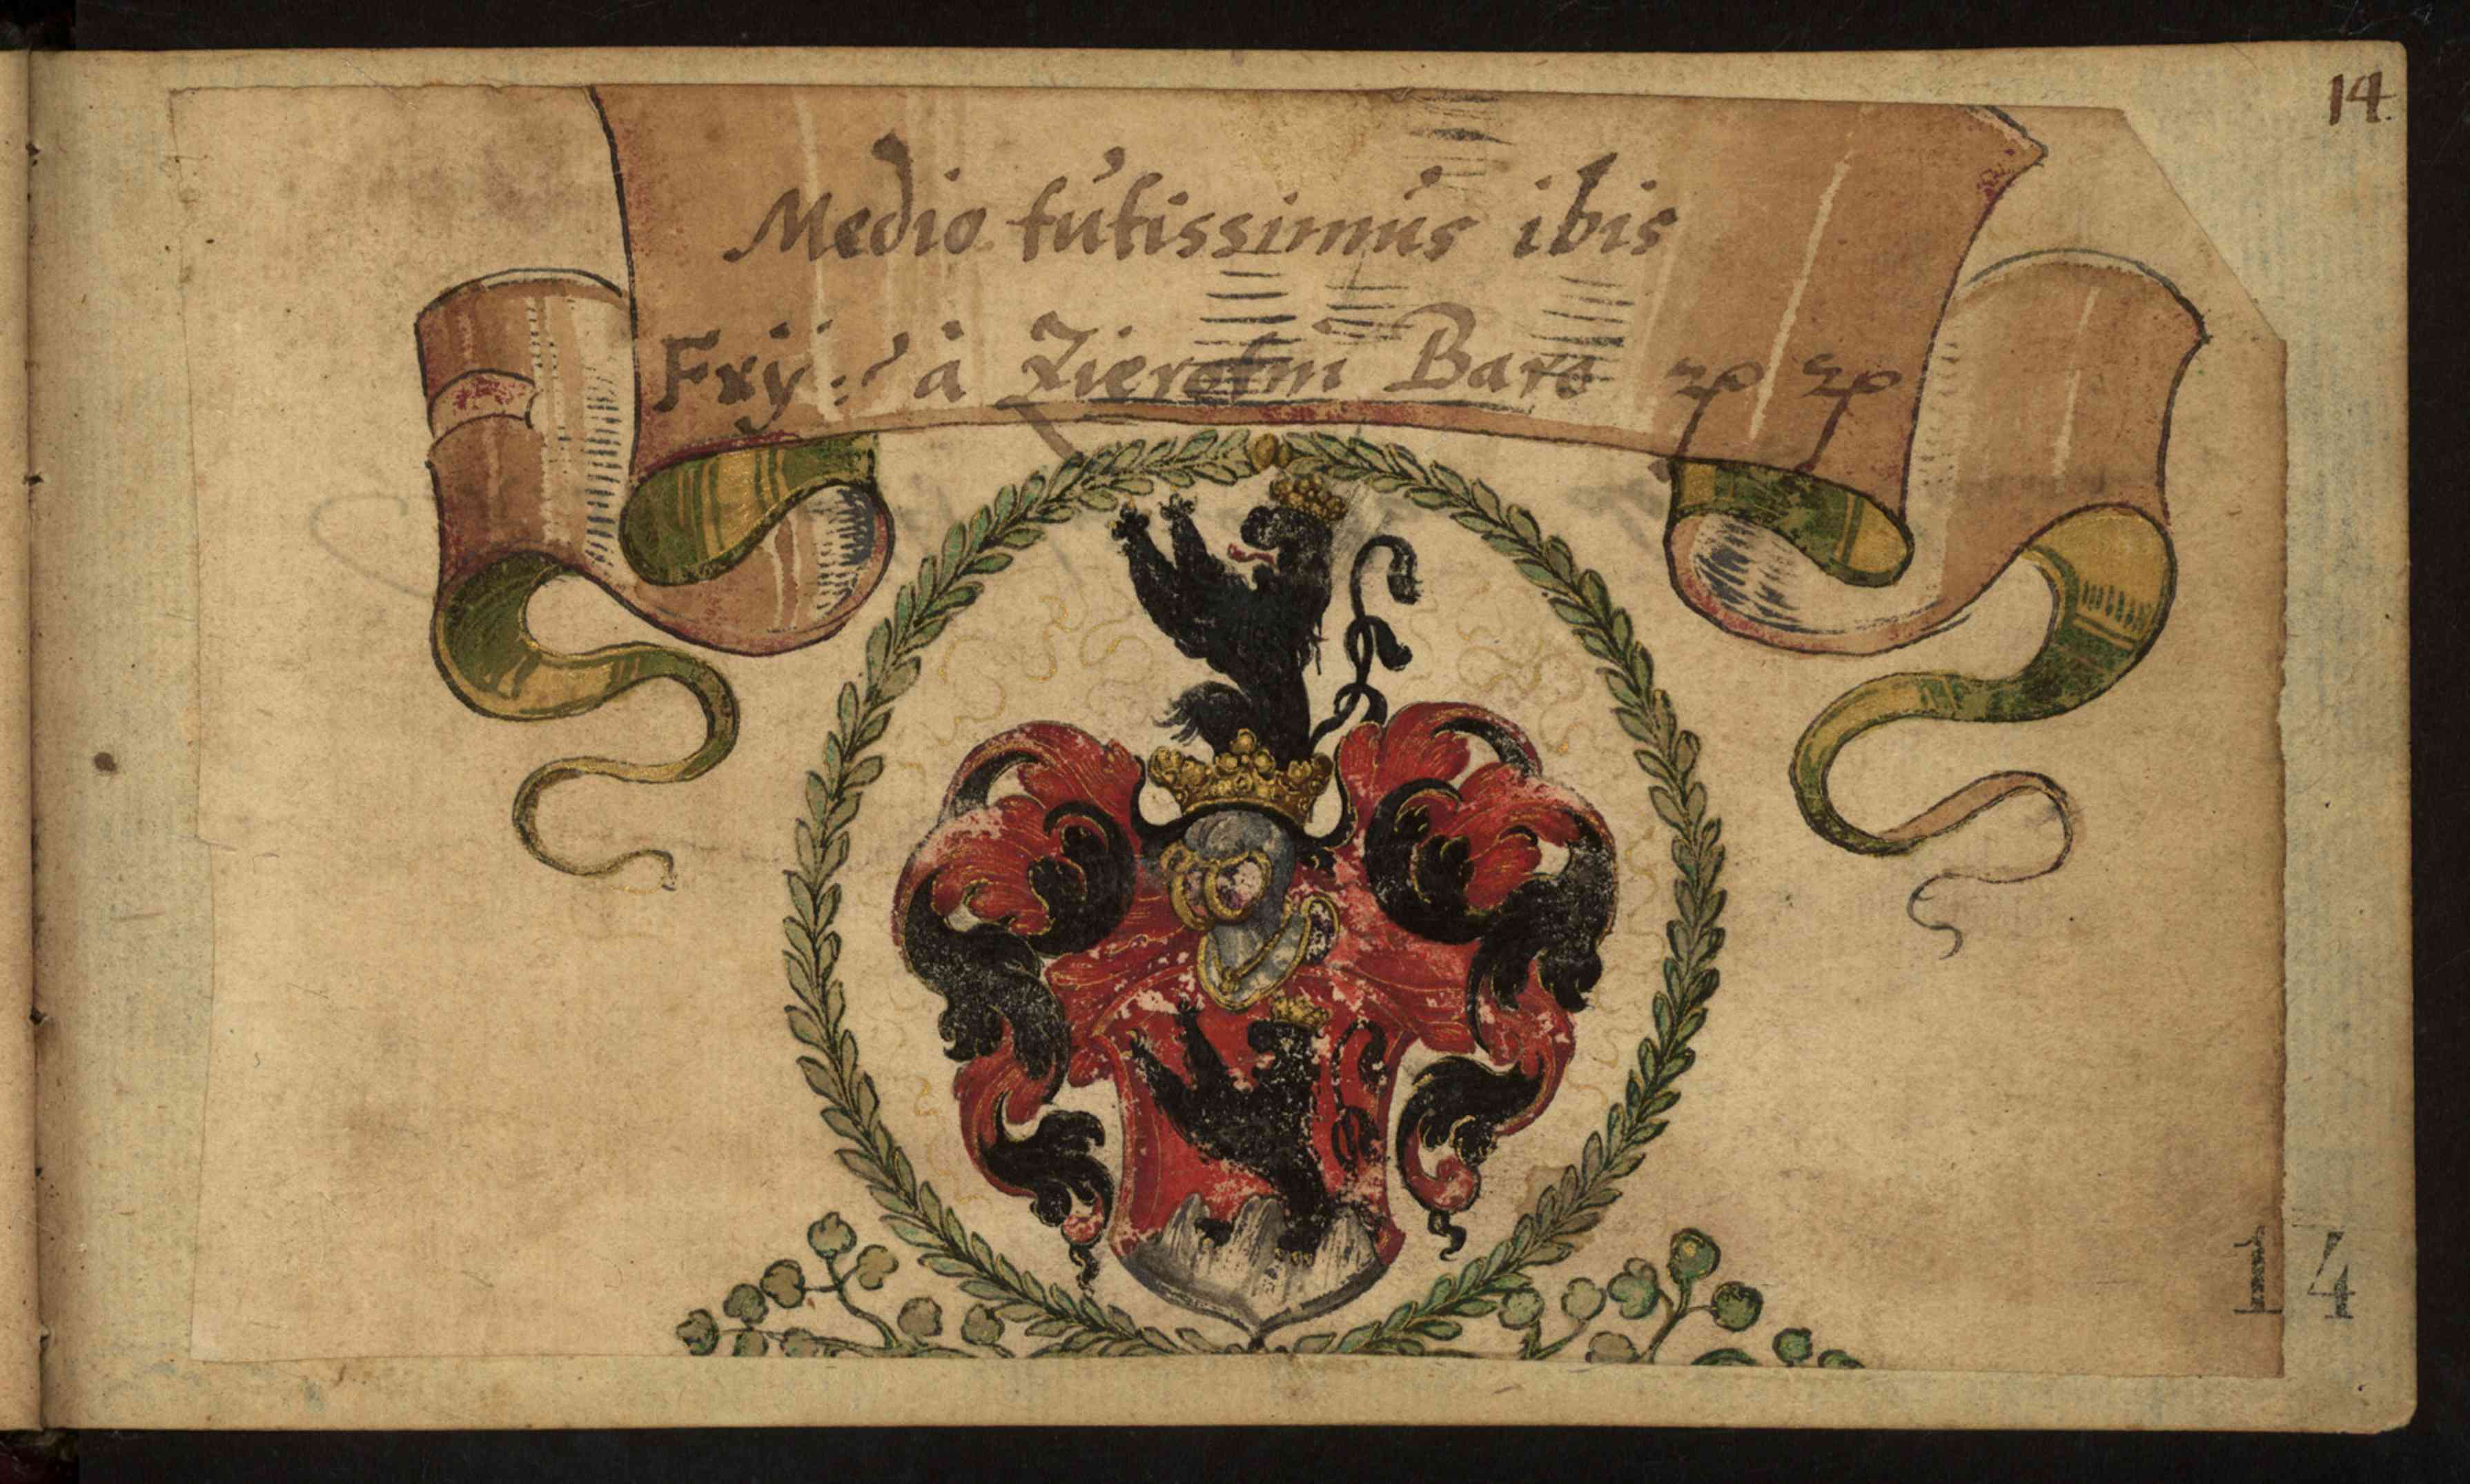 14.
Medio tutissimus ibis
à Zierotin Baro
14